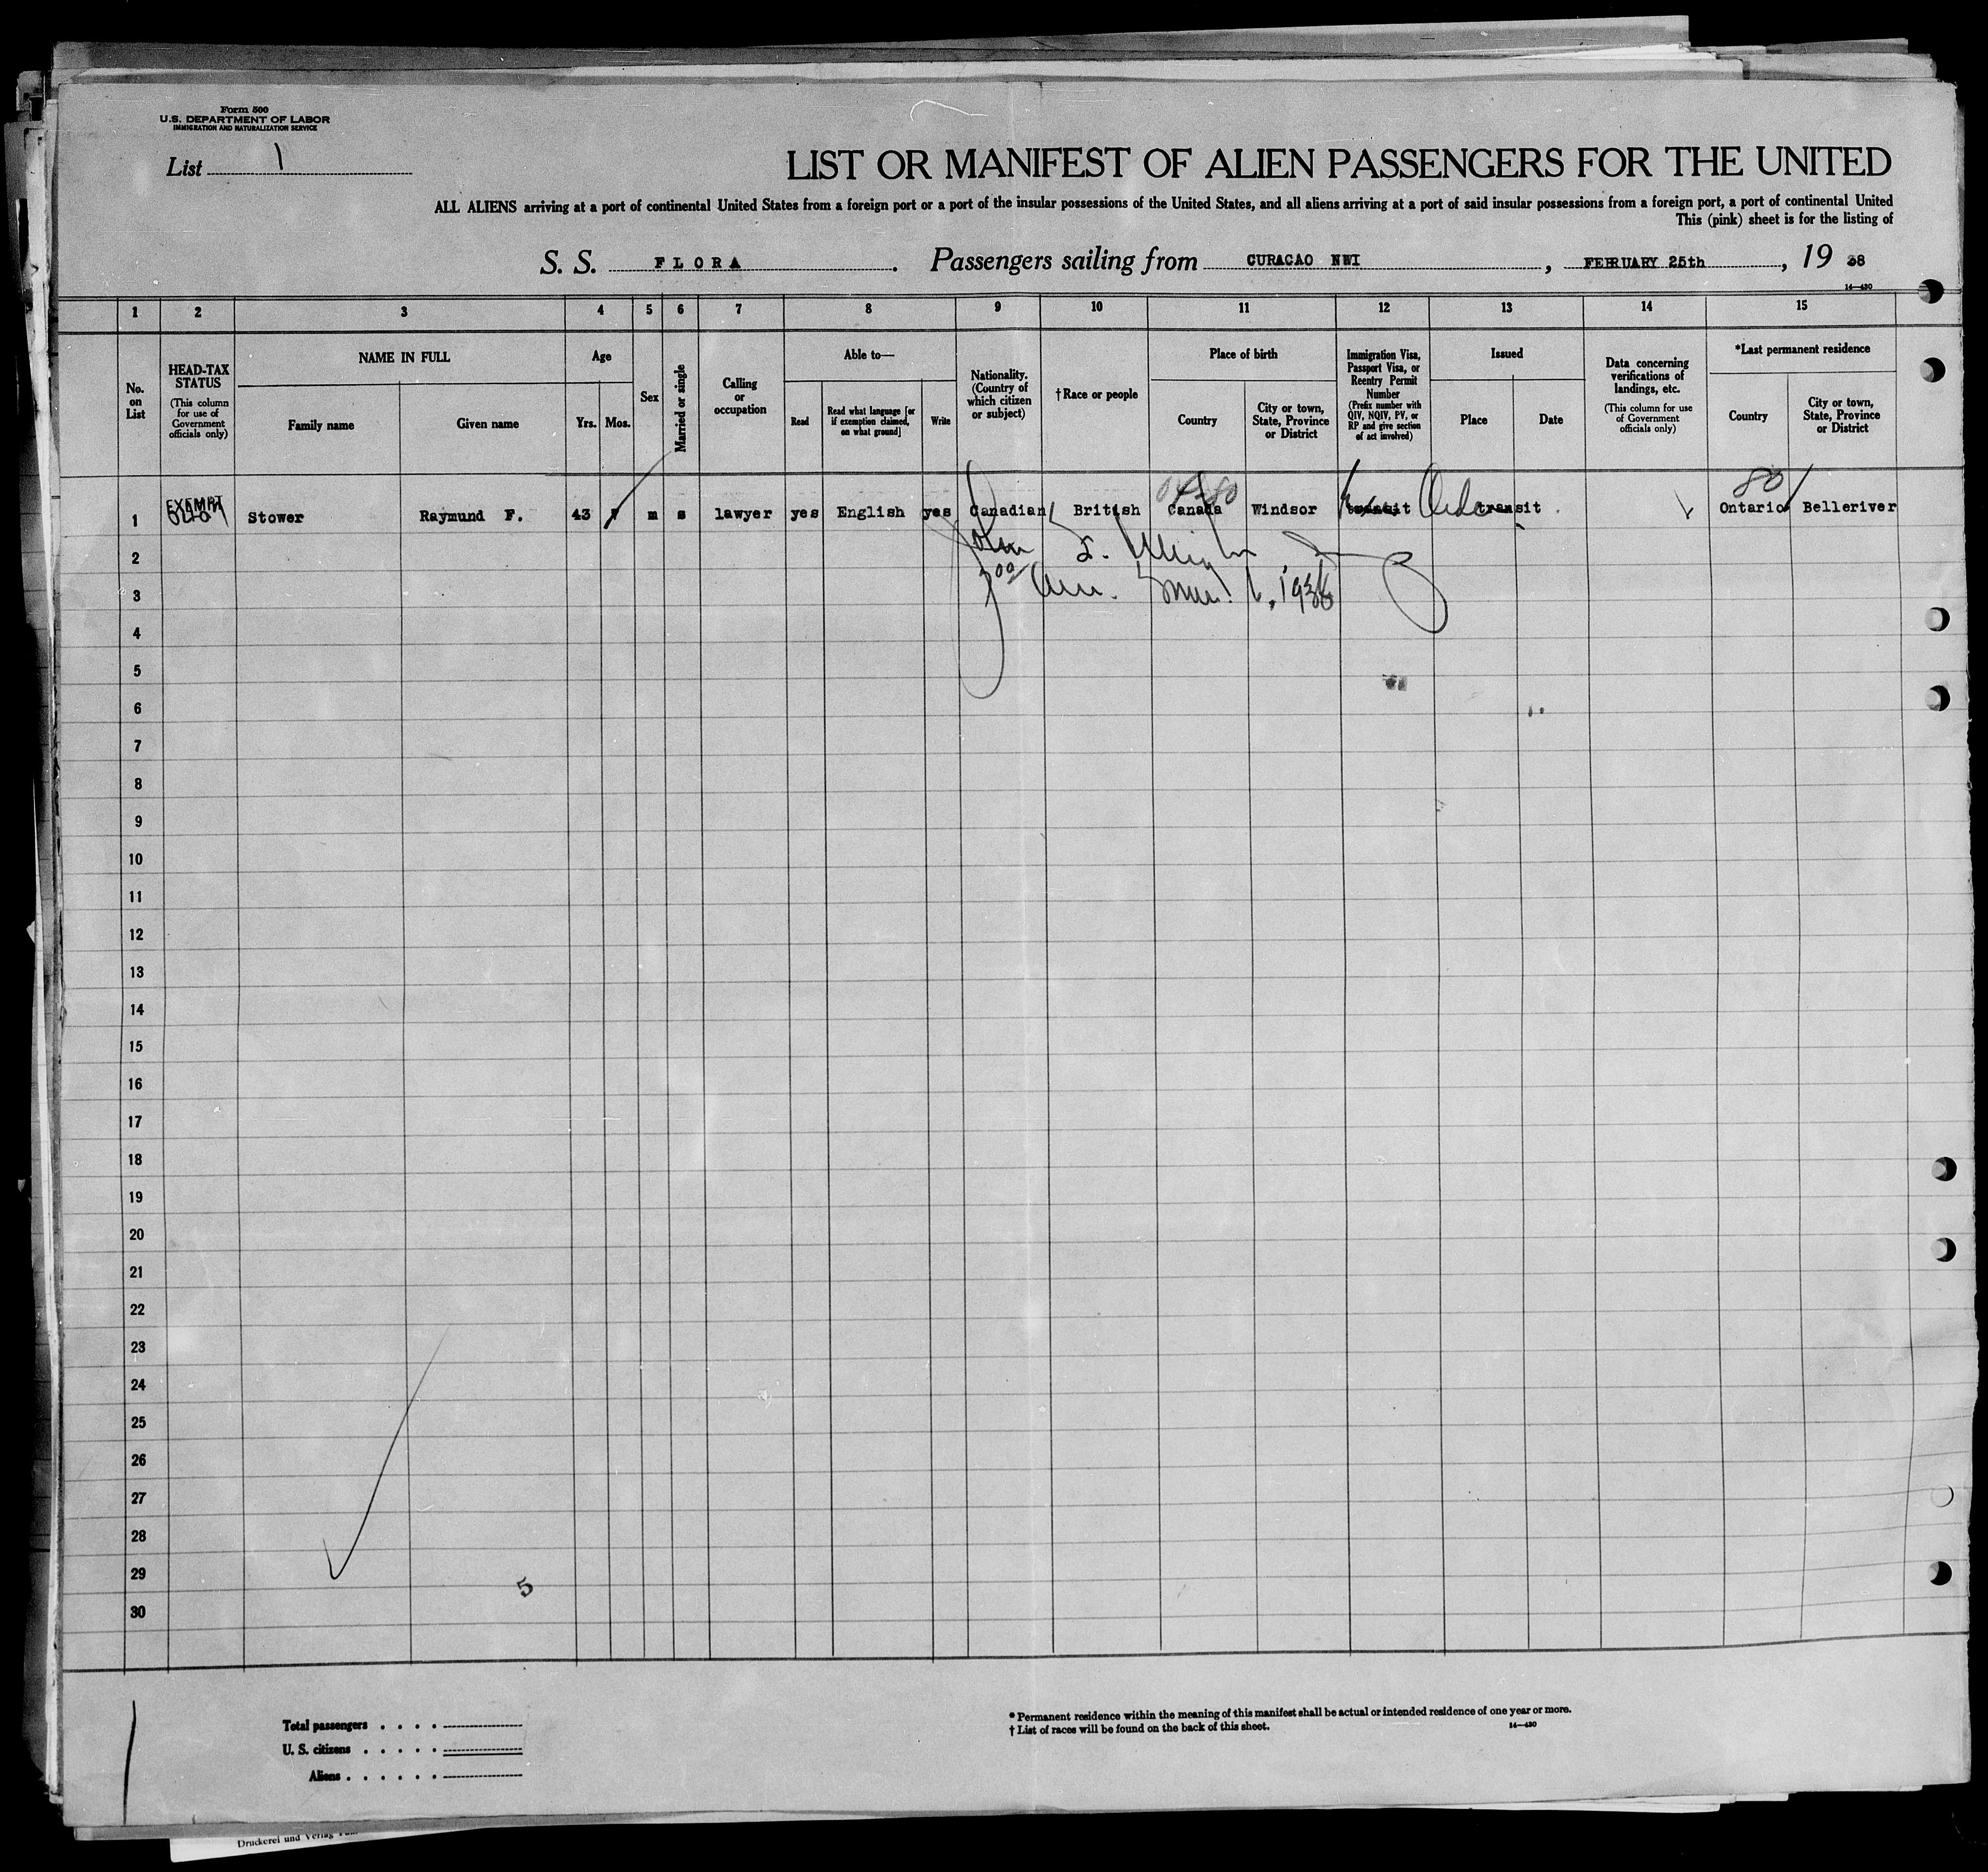 Form 500
U.S. DEPARTMENT OF LABOR
IMMIGRATION AND NATURALIZATION SERVICE
List 1
LIST OR MANIFEST OF ALIEN PASSENGERS FOR THE UNITED
ALL ALIENS arriving at a port of continental United States from a foreign port or a port of the insular possessions of the United States, and all aliens arriving at a port of said insular possessions from a foreign port, a port of continental United
This (pink) sheet is for the listing of
S. S. FLORA. Passengers sailing from CURACAO NWI, FEBRUARY 25th, 19 38
14—430
1 2 3 4 5 6 7 8 9 10 11 12 13 14 15
No. on List
HEAD-TAX STATUS
(This column for use of Government officials only)
NAME IN FULL
Family name
Given name
Age
Yrs.
Mos.
Sex
Married or single
Calling or occupation
Able to—
Read
Read what language [or if exemption claimed, on what ground]
Write
Nationality. (Country of which citizen or subject)
†Race or people
Place of birth
Country
City or town, State, Province or District
Immigration Visa, Passport Visa, or Reentry Permit Number
(Prefix number with QIV, NQIV, PV, or RP and give section of act involved)
Issued
Place
Date
Data concerning verifications of landings, etc.
(This column for use of Government officials only)
*Last permanent residence
Country
City or town, State, Province or District
80
EXEMPT
1 Stower Raymund F. 43 m s lawyer yes English yes Canadian British Canada Windsor transit transit Ontario Belleriver
2 John
3 1938
4
5
6
7
8
9
10
11
12
13
14
15
16
17
18
19
20
21
22
23
24
25
26
27
28
29
5
30
Total passengers . . . .
U. S. citizens . . . . .
Aliens . . . . . .
* Permanent residence within the meaning of this manifest shall be actual or intended residence of one year or more.
† List of races will be found on the back of this sheet.
14—430
Druckerei und Verlag